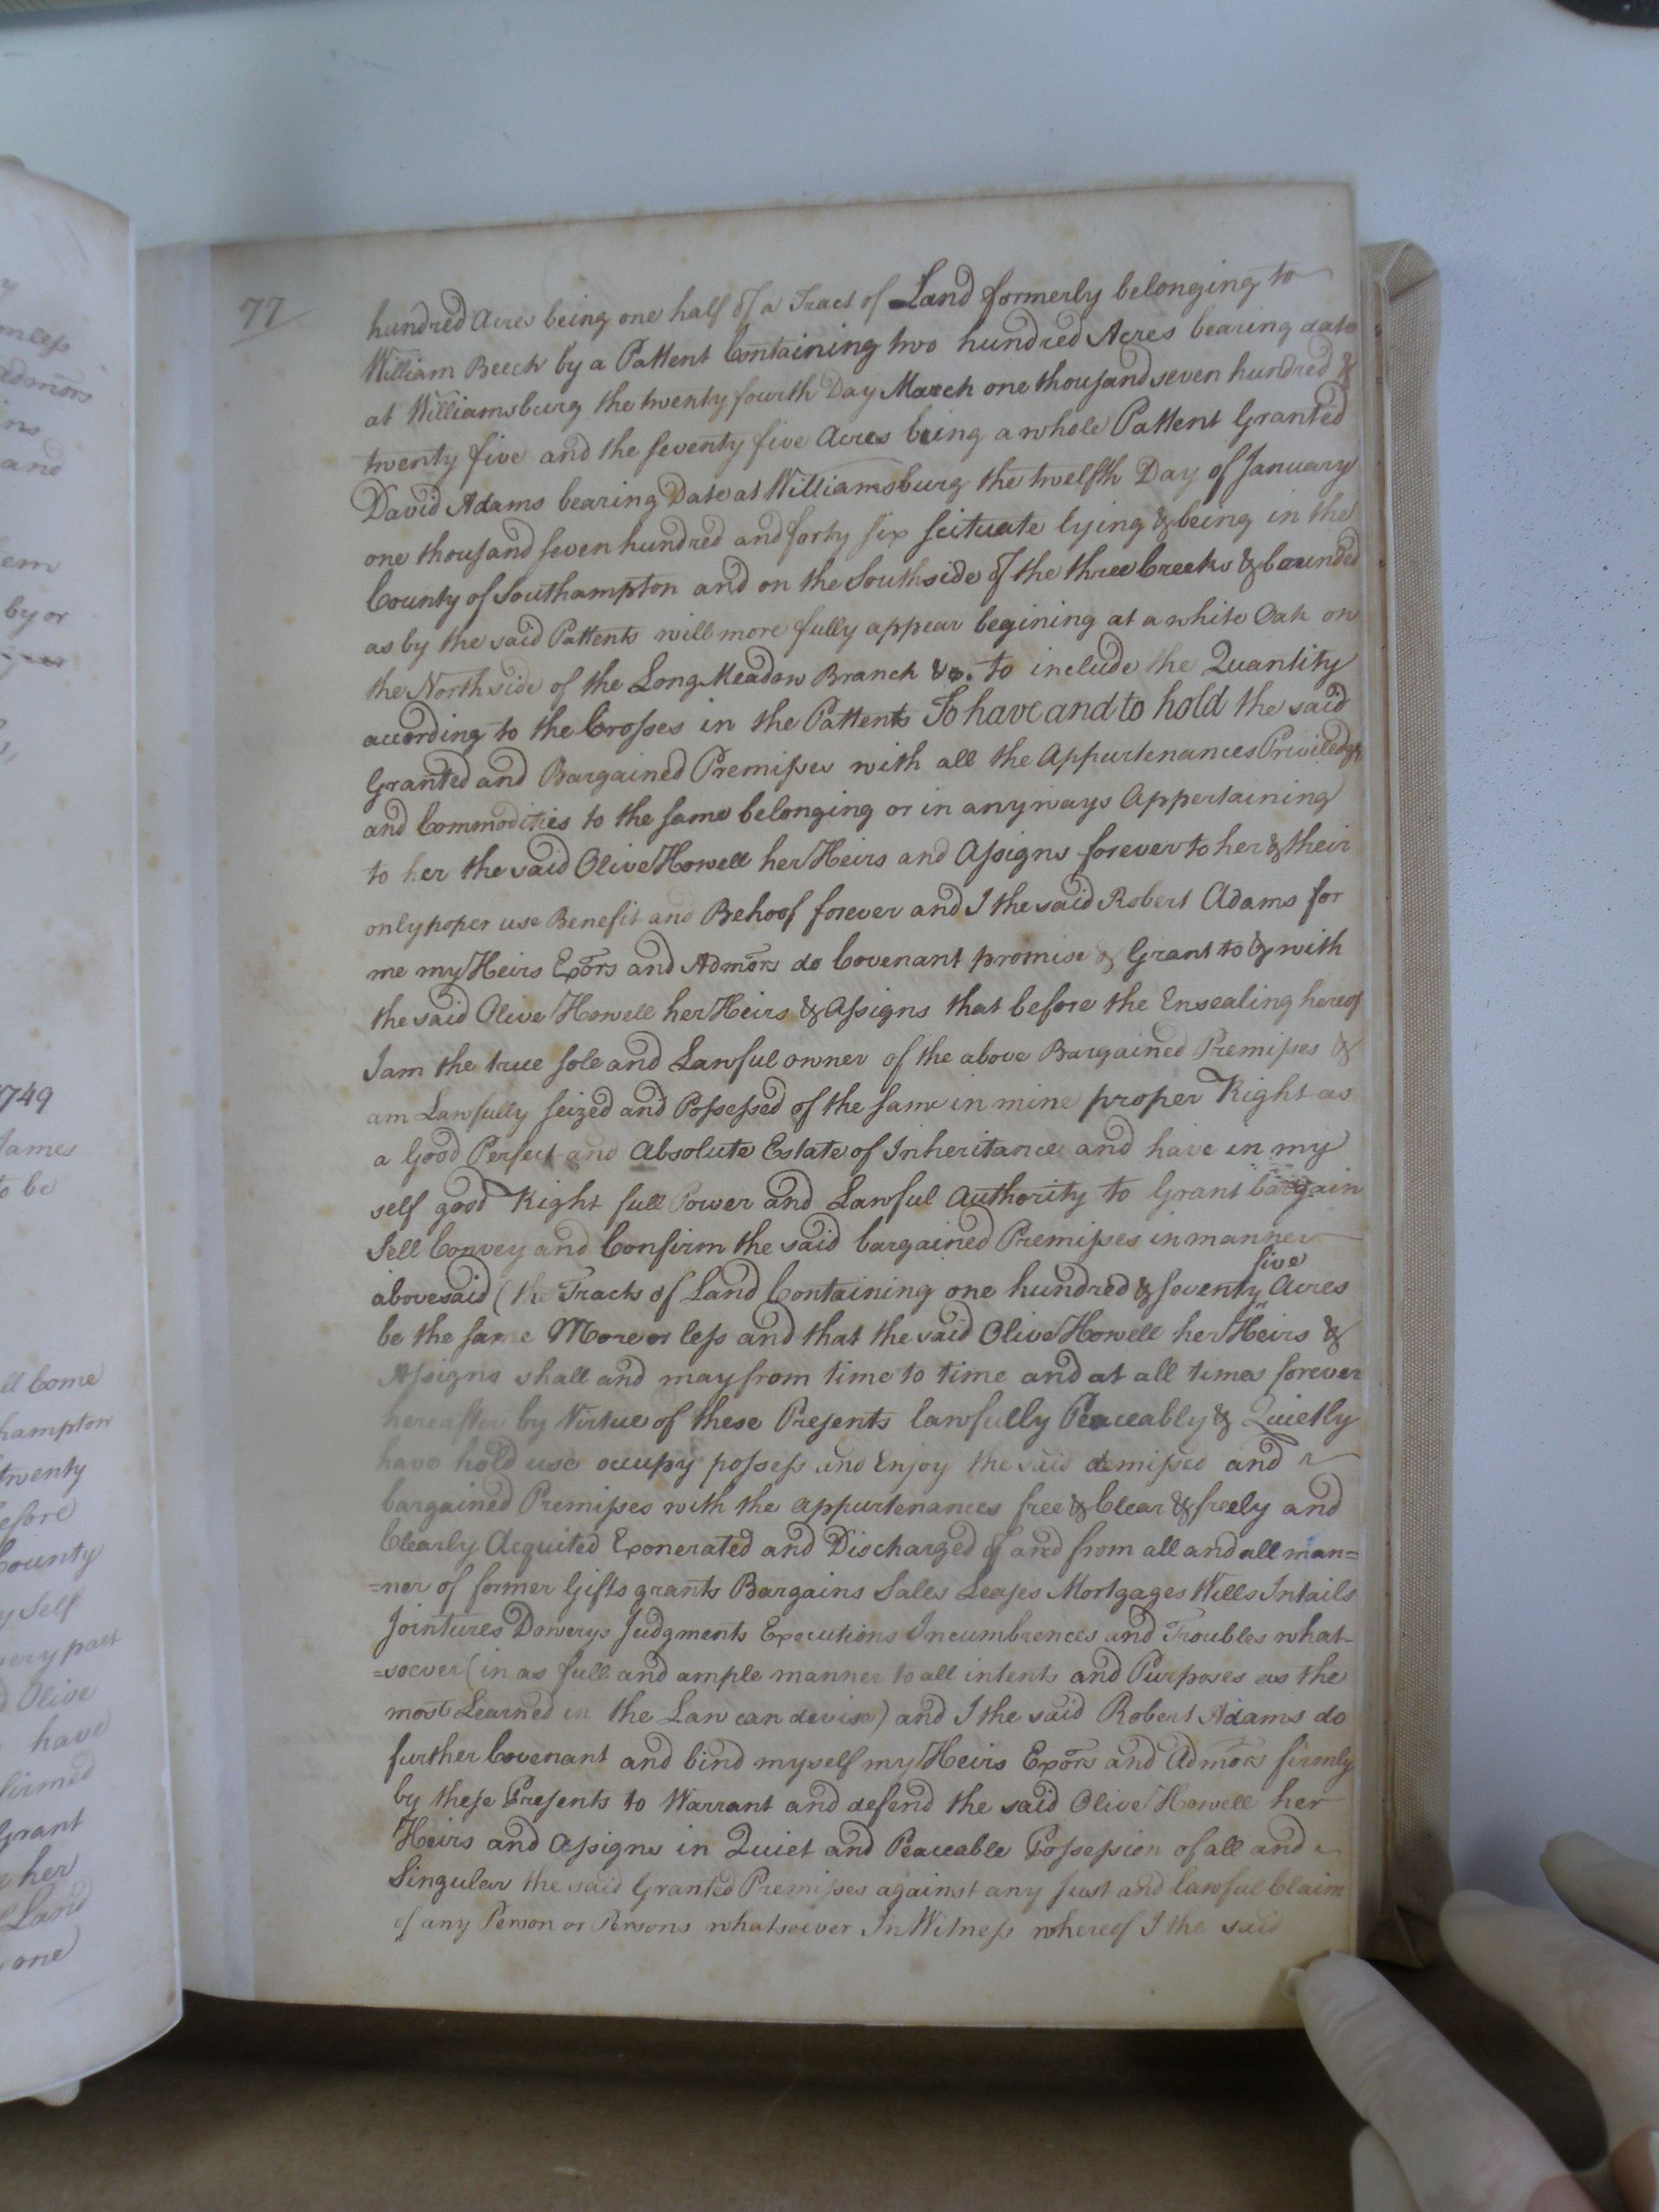 77
hundred Acres being one half of a Tract of Land formerly belonging to
William Beech by a Pattent Containing two hundred Acres bearing date
at Williamsburg the twenty fourth Day March one thousand seven hundred &
twenty five and the seventy five Acres being a whole Pattent Granted
David Adams bearing Date at Williamsburg the twelfth Day of January
one thousand seven hundred and forty six scituate lying & being in the
County of Southampton and on the Southside of the three Creeks & bounded
as by the said Pattents will more fully appear begining at a white Oak on
the North side of the Long Meadow Branch &c. to include the Quantity
according to the Crosses in the Pattents To have and to hold the said
Granted and Bargained Premisses with all the Appurtenances Priviledges
and Commodities to the same belonging or in anyways Appertaining
to her the said Olive Howell her Heirs and Assigns forever to her & their
only poper use Benefit and Behoof forever and I the said Robert Adams for
me my Heirs Exors and Admors do Covenant promise & Grant to & with
the said Olive Howell her Heirs & Assigns that before the Ensealing hereof
I am the true sole and Lawful owner of the above Bargained Premisses &
am Lawfully seized and Possessed of the same in mine proper Right as
a Good Perfect and Absolute Estate of Inheritance and have in my
self good Right full Power and Lawful Authority to Grant bargain
Sell Convey and Confirm the said bargained Premisses in manner
abovesaid (the Tracts of Land Containing one hundred & seventy five Acres
be the same More or less and that the said Olive Howell her Heirs &
Assigns shall and may from time to time and at all times forever
hereafter by Virtue of these Presents lawfully Peaceably & Quietly
have hold use occupy possess and Enjoy the said demissed and
bargained Premisses with the appurtenances free & Clear & freely and
Clearly Acquited Exonerated and Discharged of and from all and all man=
=ner of former Gifts grants Bargains Sales Leases Mortgages Wills Intails
Jointures Dowerys Judgments Executions Incumbrences and Troubles what-
=soever (in as full and ample manner to all intents and Purposes as the
most Learned in the Law can devise) and I the said Robert Adams do
further Covenant and bind myself my Heirs Exors and Admors firmly
by these Presents to Warrant and defend the said Olive Howell her
Heirs and Assigns in Quiet and Peaceable Possession of all and
Singular the said Granted Premisses against any just and lawful Claim
of any Person or Persons whatsoever In Witness whereof I the said